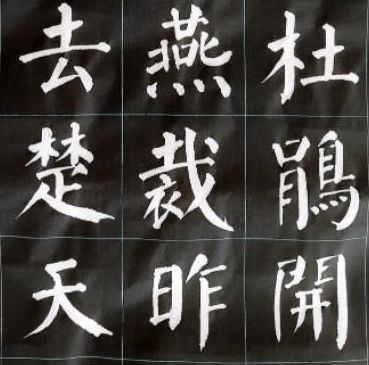 杜鵑開
燕裁昨
去楚天